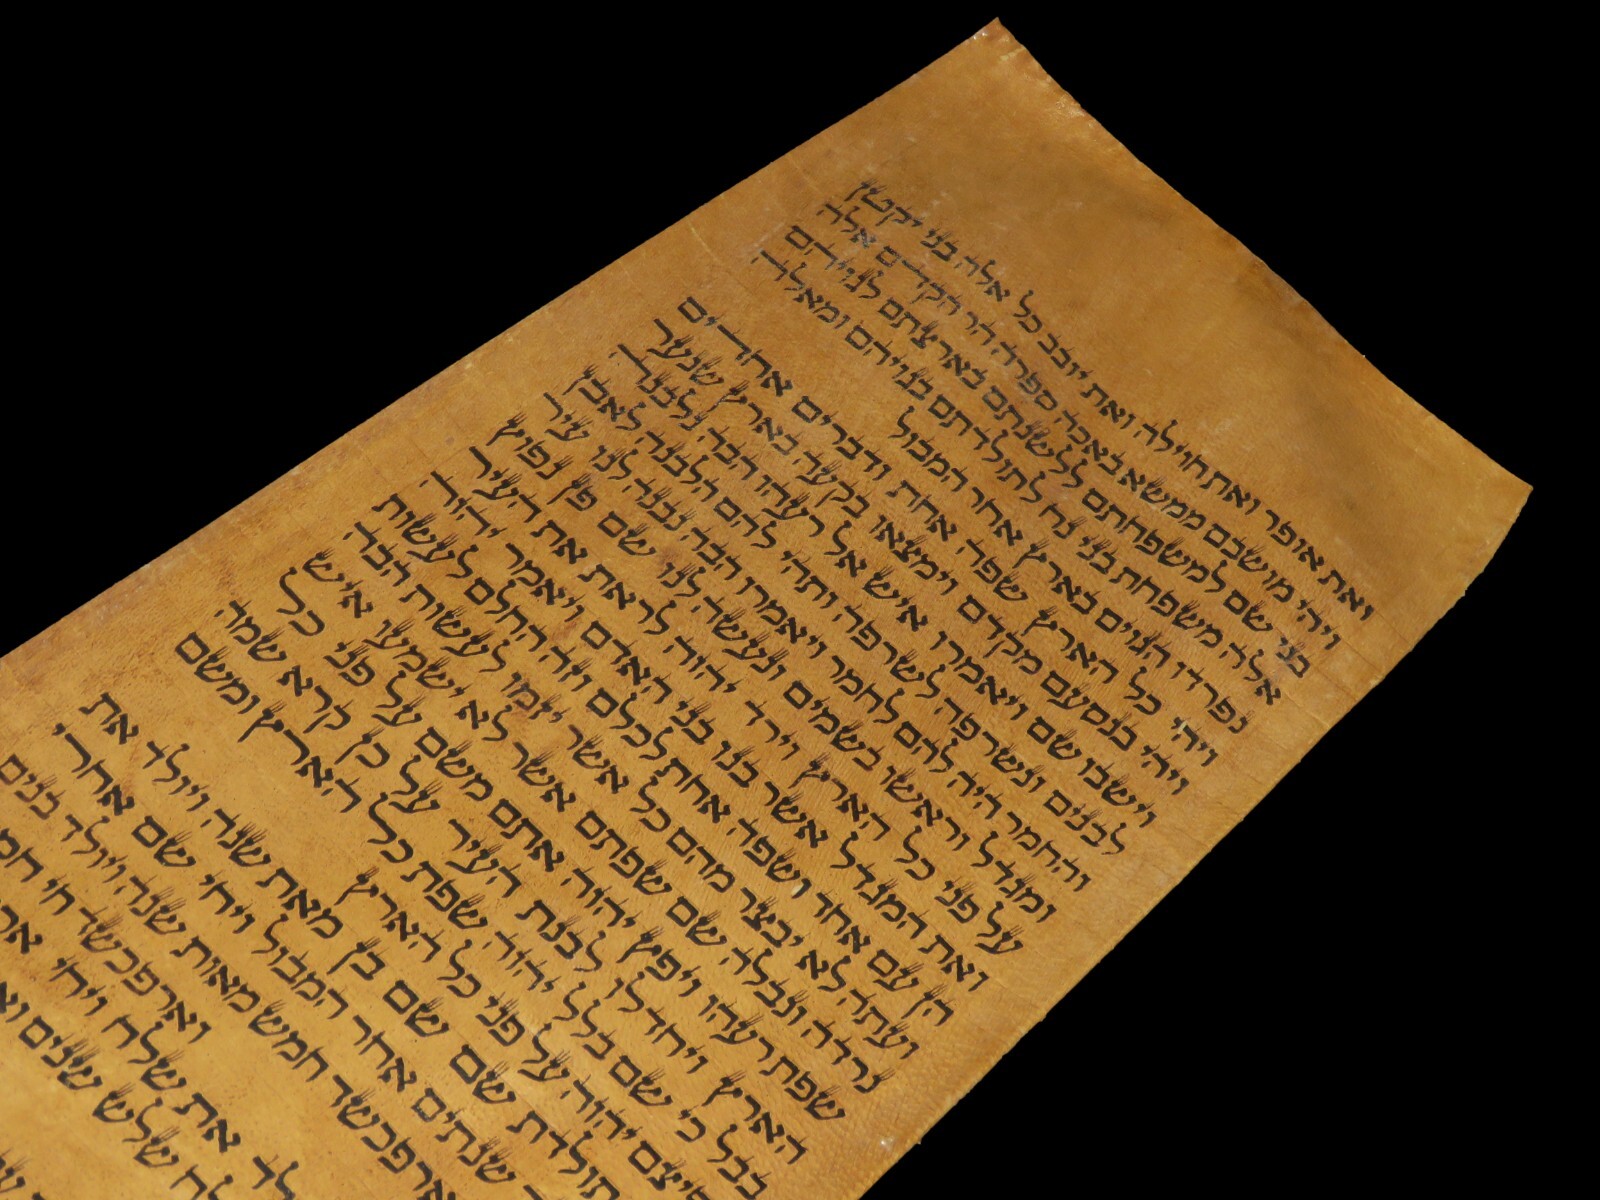 ואת אופר ואת חוילה ואת יובב כל אלה בני יקטן
ויהי מושבם ממשא באכה ספרה הר הקדם אלה
בני שם למשפחתם ללשנתם בארצתם לגויהם
אלה משפחת בני נח לתולדתם בגויהם ומאלה
נפרדו הגוים בארץ אחר המבול
ויהי כל הארץ שפה אחת ודברים אחדים
ויהי בנסעם מקדם וימצאו בקעה בארץ שנער
וישבו שם ויאמרו איש אל רעהו הבה נלבנה
לבנים ונשרפה לשרפה ותהי להם הלבנה לאבן
והחמר היה להם לחמר ויאמרו הבה נבנה לנו עיר
ומגדל וראשו בשמים ונעשה לנו שם פן נפוץ
על פני כל הארץ וירד יהוה לראת את העיר
ואת המגדל אשר בנו בני האדם ויאמר יהוה
הן עם אחד ושפה אחת לכלם וזה החלם לעשות
ועתה לא יבצר מהם כל אשר יזמו לעשות הבה
נרדה ונבלה שם שפתם אשר לא ישמעו איש
שפת רעהו ויפץ יהוה אתם משם על פני כל
הארץ ויחדלו לבנת העיר על כן קרא שמה
בבל כי שם בלל יהוה שפת כל הארץ ומשם
הפיצם יהוה על פני כל הארץ
תולדת שם שם בן מאת שנה ויולד את
שנתים אחר המבול ויחי שם אחרי
ארפכשד חמש מאות שנה ויולד בנים
וארפכשד חי
את שלח ויחי
שלש שנים